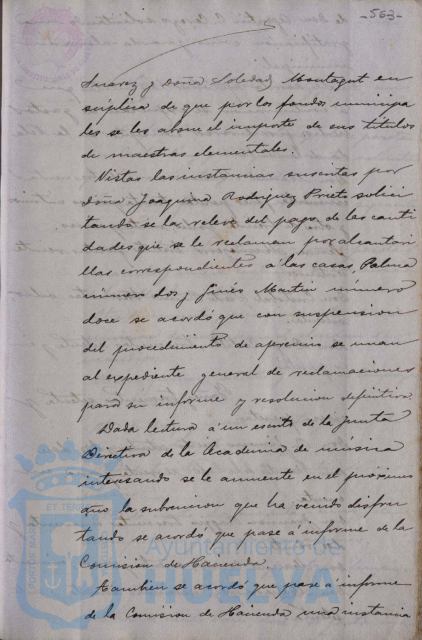 -563-
Suarez y Doña Soledad Montagut en
súplica de que por los fondos municipa
les se les abone el importe de sus títulos
de maestras elementales.
Vistas las instancias suscritas por
Doña Joaquina Rodriguez Prieto solici
tando se la releve del pago de las canti
dades que se le reclaman por alcantari
llas correspondientes á las casas, Palma
número dos y Ginés Martin número
doce se acordó que con suspension
del procedimiento de apremio se unan
al expediente general de reclamaciones
para su informe y resolucion definitiva.
Dada lectura á un escrito de la Junta
Directiva de la Academia de música
interesando se le aumente en el próximo
año la subvencion que ha venido disfru
tando se acordó que pase á informe de la
Comision de Hacienda.
Tambien se acordó que pase á informe
de la Comision de Hacienda una instancia
Ayuntamiento de
HUELVA